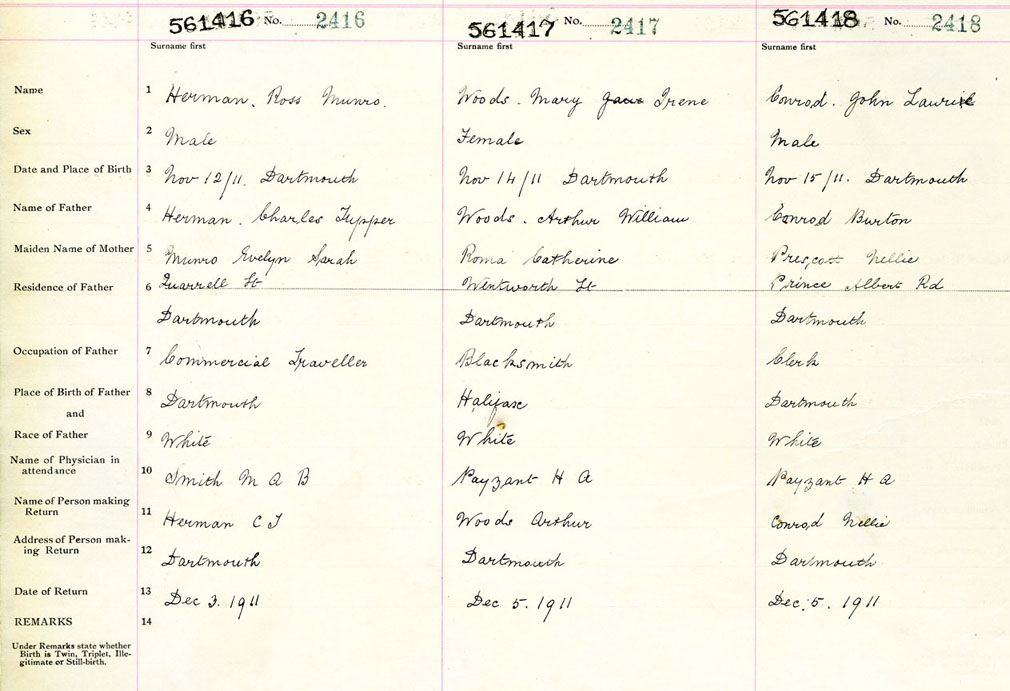 561416 No. 2416 561417 No. 2417 561418 No. 2418
Surname first Surname first Surname first
Name 1 Herman, Ross Munro. Woods. Mary Jane Irene Conrod. John Laurie
Sex 2 Male Female Male
Date and Place of Birth 3 Nov 12/11. Dartmouth Nov 14/11 Dartmouth Nov 15/11. Dartmouth
Name of Father 4 Herman. Charles Tupper Woods. Arthur William Conrod Burton
Maiden Name of Mother 5 Munro Evelyn Sarah Roma Catherine Prescott Nellie
Residence of Father 6 Quarrell St Wentworth St Prince Albert Rd
Dartmouth Dartmouth Dartmouth
Occupation of Father 7 Commercial Traveller Blacksmith Clerk
Place of Birth of Father 8 Dartmouth Halifax Dartmouth
and
Race of Father 9 White White White
Name of Physician in
attendance 10 Smith M A B Payzant H A Payzant H A
Name of Person making
Return 11 Herman C T Woods Arthur Conrod Nellie
Address of Person mak-
ing Return 12 Dartmouth Dartmouth Dartmouth
Date of Return 13 Dec 3. 1911 Dec 5. 1911 Dec. 5. 1911
REMARKS 14
Under Remarks state whether
Birth is Twin, Triplet, Ille-
gitimate or Still-birth.